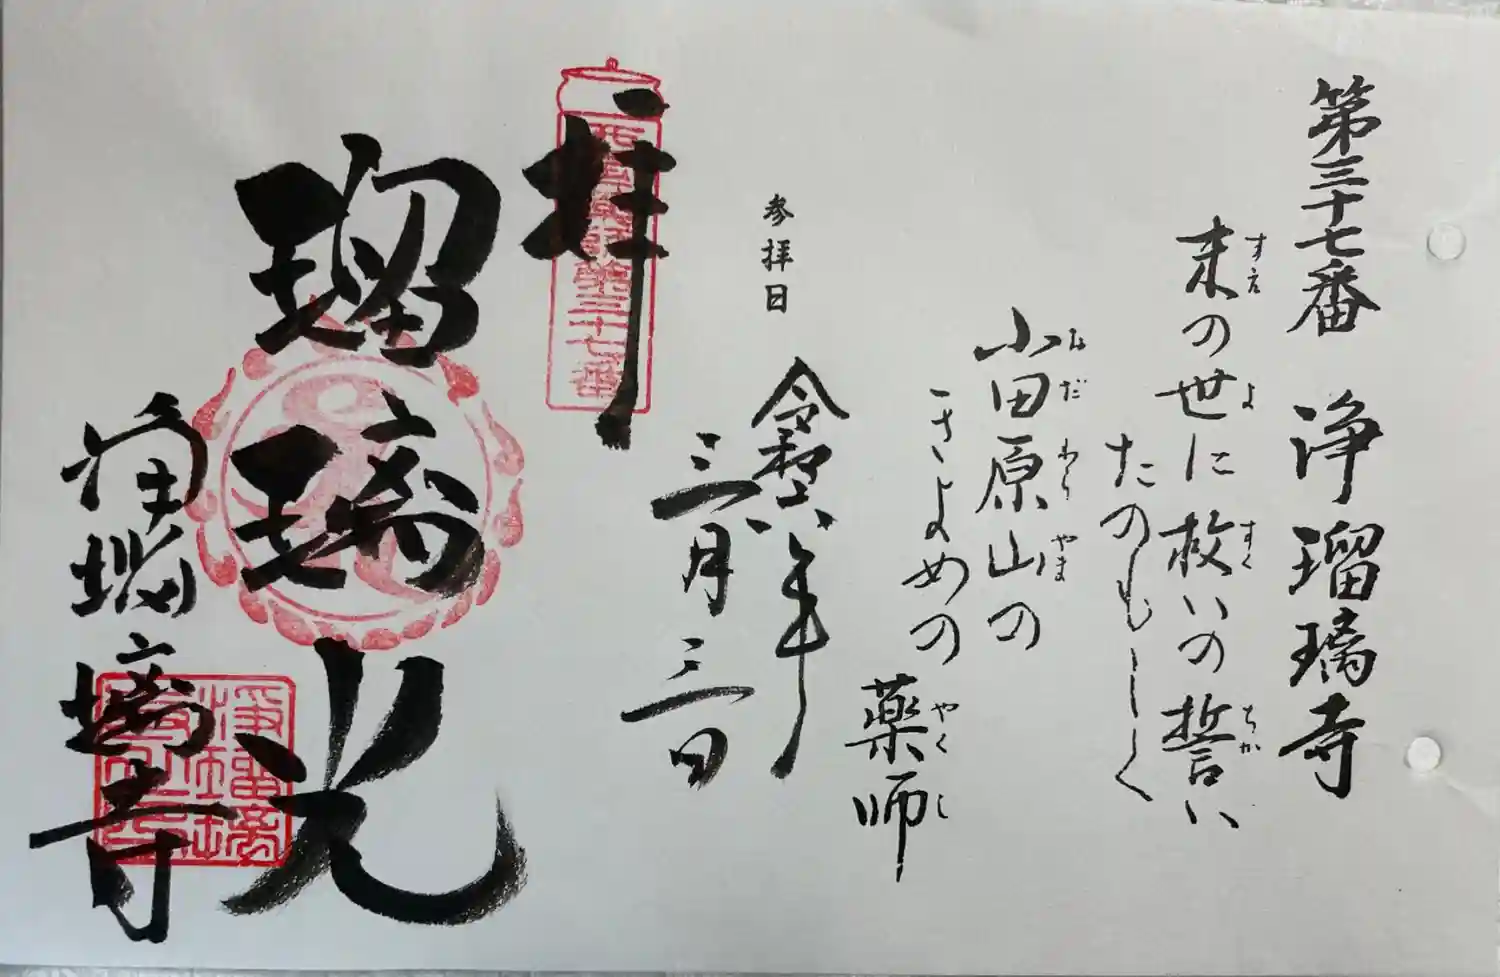 第三十七番 浄瑠璃寺
末の世に救いの誓い
すえ よ すく ちか
たのもしく
小田原山の
おだわらやま
きよめの
薬師
やくし
参拝日
令和六年
三月三日
奉拝
第三十七番
瑠璃光
浄瑠璃寺